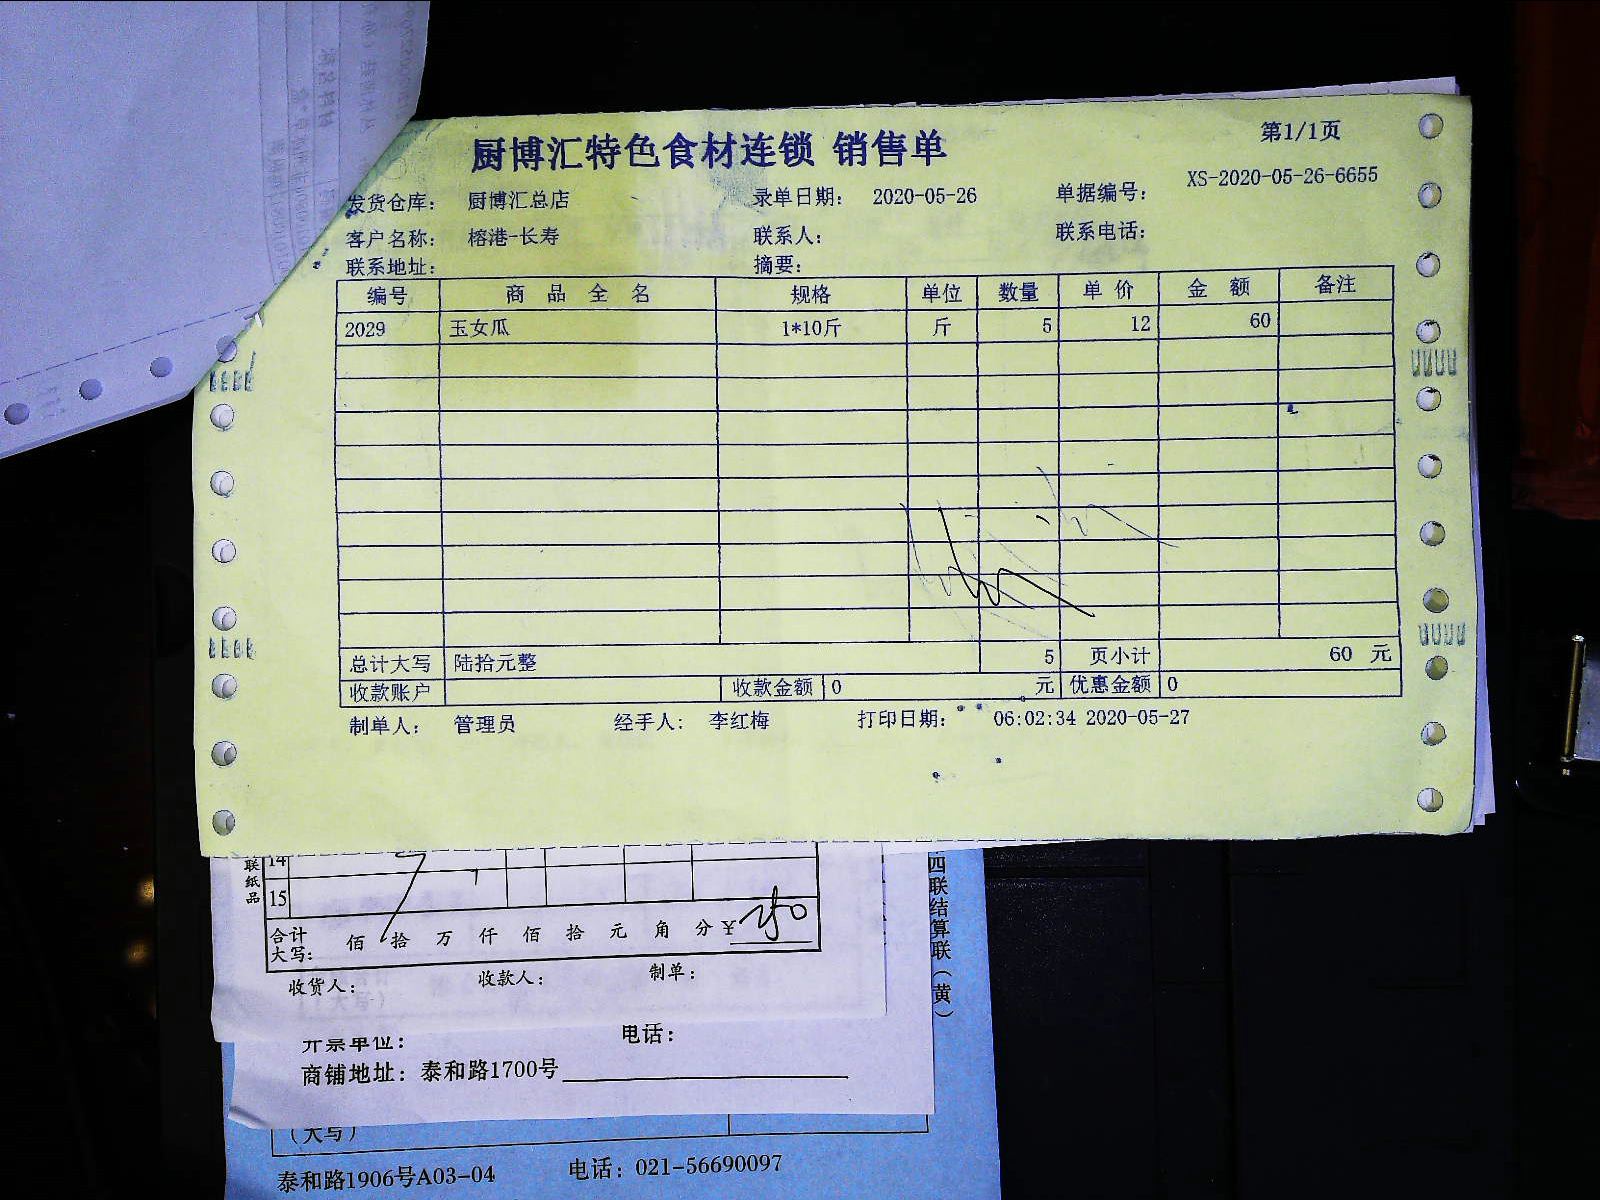 厨博汇特色食材连锁 销售单
第1/1页
发货仓库： 厨博汇总店 录单日期： 2020-05-26 单据编号： XS-2020-05-26-6655
客户名称： 榕港-长寿 联系人： 联系电话：
联系地址： 摘要：
编号 商品全名 规格 单位 数量 单价 金额 备注
2029 玉女瓜 1*10斤 斤 5 12 60
总计大写 陆拾元整 5 页小计 60 元
收款账户 收款金额 0 元 优惠金额 0
制单人： 管理员 经手人： 李红梅 打印日期： 06:02:34 2020-05-27
14
15
联纸品
合计大写： 佰 拾 万 仟 佰 拾 元 角 分 ¥
收货人： 收款人： 制单：
四联结算联（黄）
开票单位： 电话：
商铺地址：泰和路1700号
（大写）
泰和路1906号A03-04 电话：021-56690097